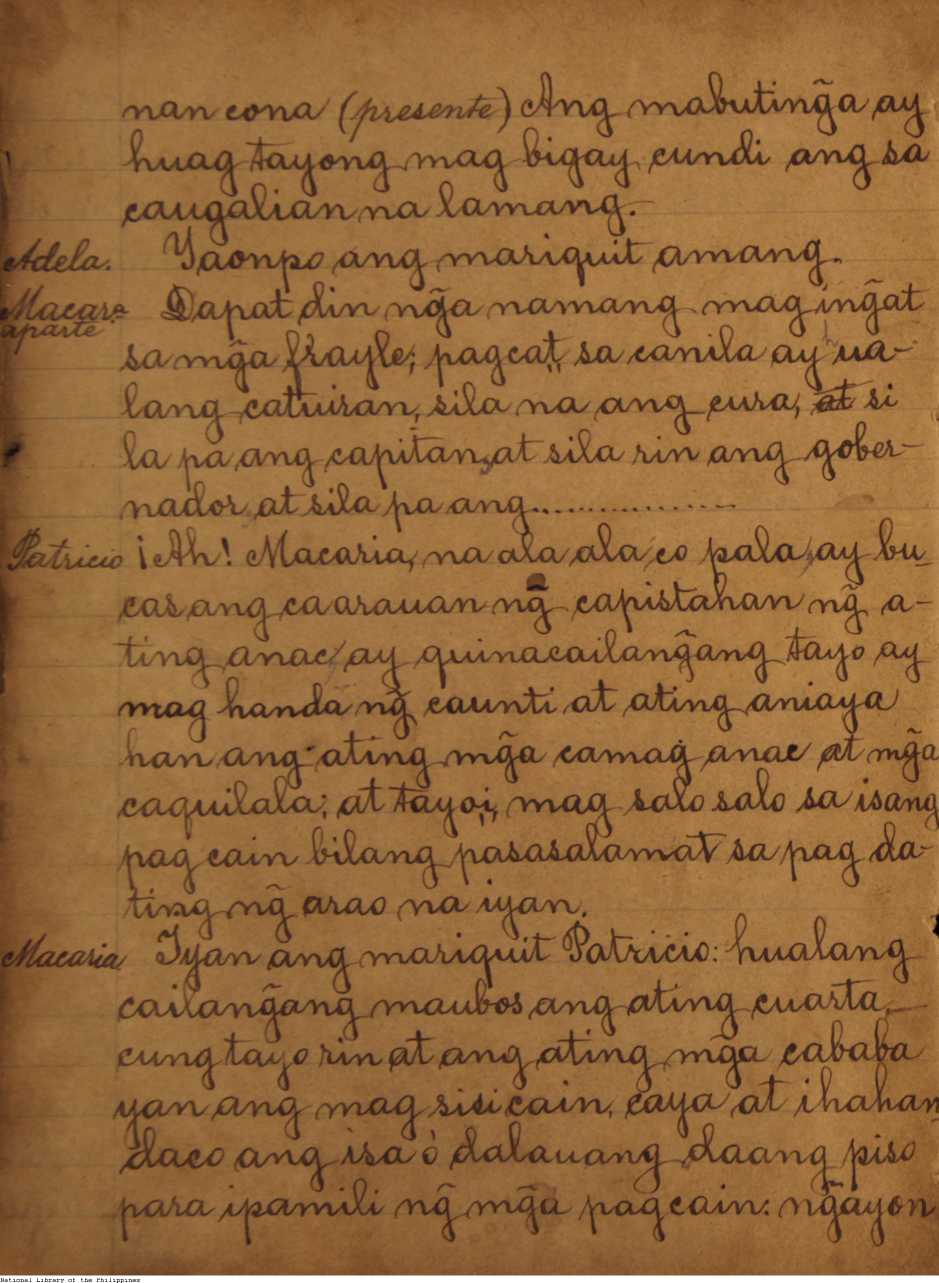 nan cona (presente) Ang mabuting̃a ay
huag tayong mag bigay cundi ang sa
caugalian na lamang.
Adela. Yaonpo ang mariquit amang.
Macara. aparte Dapat din ng̃a namang mag ing̃at
sa mg̃a frayle; pagcat, sa canila ay ua-
lang catuiran, sila na ang cura, at si
la pa ang capitan, at sila rin ang gober-
nador at sila pa ang................
Patricio ¡Ah! Macaria, na ala ala co pala, ay bu-
cas ang caarauan ng̃ capistahan ng̃ a-
ting anac, ay quinacailang̃ang tayo ay
mag handa ng̃ caunti at ating aniaya
han ang ating mg̃a camag anac at mg̃a
caquilala; at tayoi, mag salo salo sa isang
pag cain bilang pasasalamat sa pag da-
ting ng̃ arao na iyan.
Macaria Iyan ang mariquit Patricio: hualang
cailang̃ang maubos ang ating cuarta,
cung tayo rin at ang ating mg̃a cababa
yan ang mag sisicain, caya at ihahan
daco ang isa ó dalauang daang piso
para ipamili ng̃ mg̃a pagcain: ng̃ayon
National Library of the Philippines